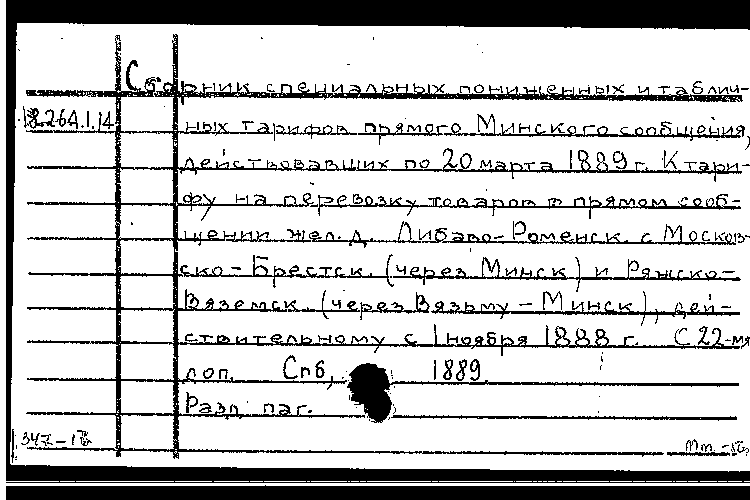 Сборник специальных пониженных и таблич-
ных тарифов прямого Минского сообщения,
действовавших по 20 марта 1889 г. К тари-
фу на перевозку товаров в прямом сооб-
щении жел. д. Либаво-Роменск. с Москов-
ско-Брестск. (через Минск) и Ряжско-
Вяземск. (через Вязьму-Минск), дей-
ствительному с 1 ноября 1888 г. С 22-мя
доп. Спб, 1889.
Разд. паг.